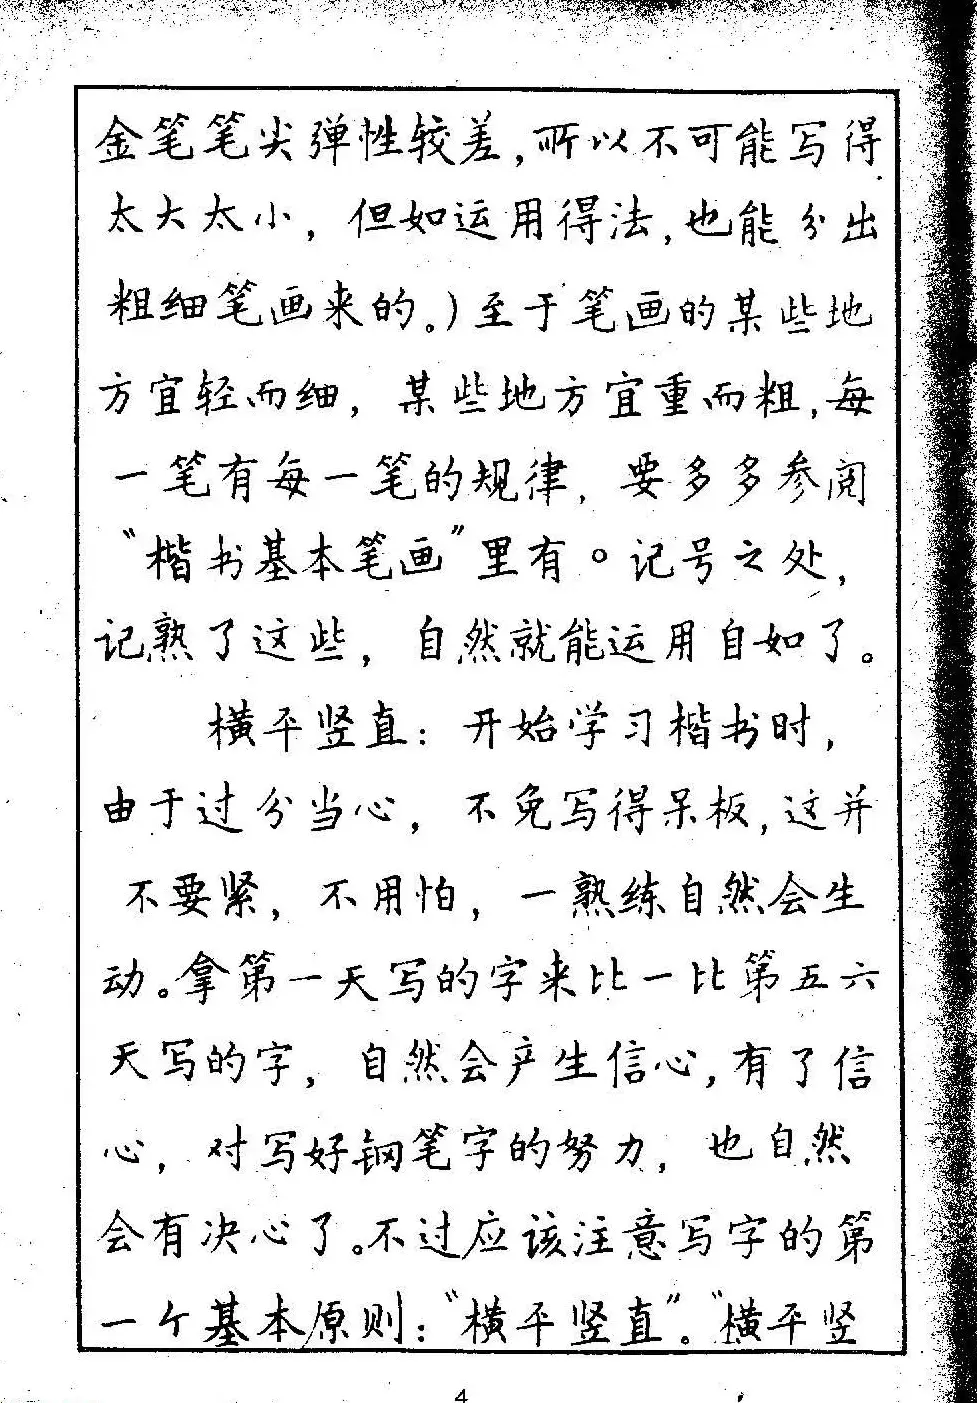 金笔笔尖弹性较差，所以不可能写得
太大太小，但如运用得法，也能分出
粗细笔画来的。）至于笔画的某些地
方宜轻而细，某些地方宜重而粗，每
一笔有每一笔的规律，要多多参阅
“楷书基本笔画”里有○记号之处，
记熟了这些，自然就能运用自如了。
横平竖直：开始学习楷书时，
由于过分当心，不免写得呆板，这并
不要紧，不用怕，一熟练自然会生
动。拿第一天写的字来比一比第五六
天写的字，自然会产生信心，有了信
心，对写好钢笔字的努力，也自然
会有决心了。不过应该注意写字的第
一个基本原则：“横平竖直”。“横平竖
4